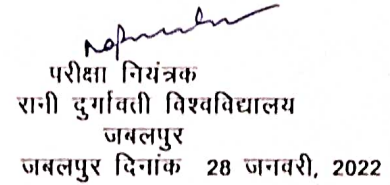 परीक्षा नियंत्रक
रानी दुर्गावती विश्वविद्यालय
जबलपुर
जबलपुर दिनांक 28 जनवरी, 2022